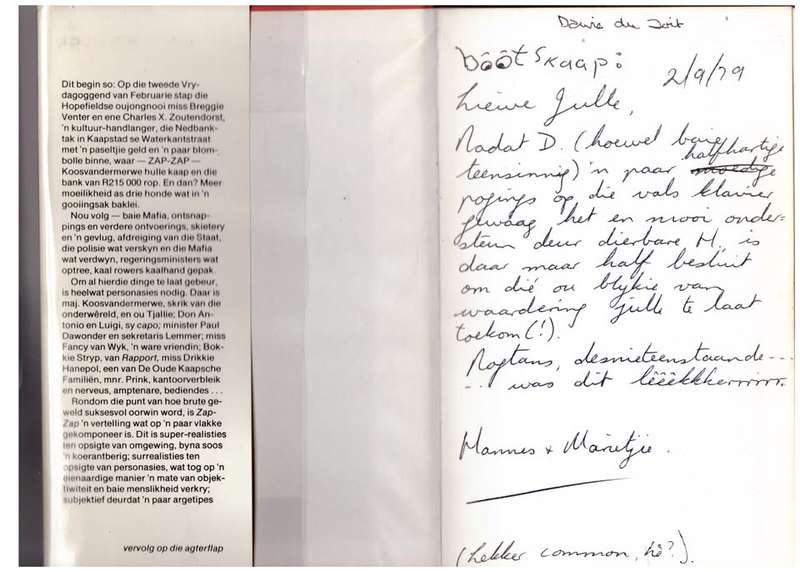 Dit begin so: Op die tweede Vry-
dagoggend van Februarie stap die
Hopefieldse oujongnooi miss Breggie
Venter en ene Charles X. Zoutendorst,
'n kultuur-handlanger, die Nedbank-
tak in Kaapstad se Waterkantstraat
met 'n paseltjie geld en 'n paar blom-
bolle binne, waar — ZAP-ZAP —
Koosvandermerwe hulle kaap en die
bank van R215 000 rop. En dan? Meer
moeilikheid as drie honde wat in 'n
gooiingsak baklei.
Nou volg — baie Mafia, ontsnap-
pings en verdere ontvoerings, skietery
en 'n gevlug, afdreiging van die Staat,
die polisie wat verskyn en die Mafia
wat verdwyn, regeringsministers wat
optree, kaal rowers kaalhand gepak.
Om al hierdie dinge te laat gebeur,
is heelwat personasies nodig. Daar is
maj. Koosvandermerwe, skrik van die
onderwêreld, en ou Tjallie; Don An-
tonio en Luigi, sy capo; minister Paul
Dawonder en sekretaris Lemmer; miss
Fancy van Wyk, 'n ware vriendin; Bok-
kie Stryp, van Rapport, miss Drikkie
Hanepol, een van De Oude Kaapsche
Familiën, mnr. Prink, kantoorverbleik
en nerveus, amptenare, bediendes . . .
Rondom die punt van hoe brute ge-
weld suksesvol oorwin word, is Zap-
Zap 'n vertelling wat op 'n paar vlakke
gekomponeer is. Dit is super-realisties
ten opsigte van omgewing, byna soos
'n koerantberig; surrealisties ten
opsigte van personasies, wat tog op 'n
eienaardige manier 'n mate van objek-
tiwiteit en baie menslikheid verkry;
subjektief deurdat 'n paar argetipes
vervolg op die agterflap
Dawie du Toit
bôôtskaap:
2/9/79
Liewe Julle,
Nadat D. (hoewel baie
halfhartige
teensinnig) 'n paar moedige
pogings op die vals klavier
gewaag het en mooi onder-
steun deur dierbare M. is
daar maar half besluit
om dié ou blykie van
waardering julle te laat
toekom (!).
Nogtans, desnieteenstaande---
--- was dit lêêêkkerrrrr.
Hannes + Marietjie.
(Lekker common, hê?).